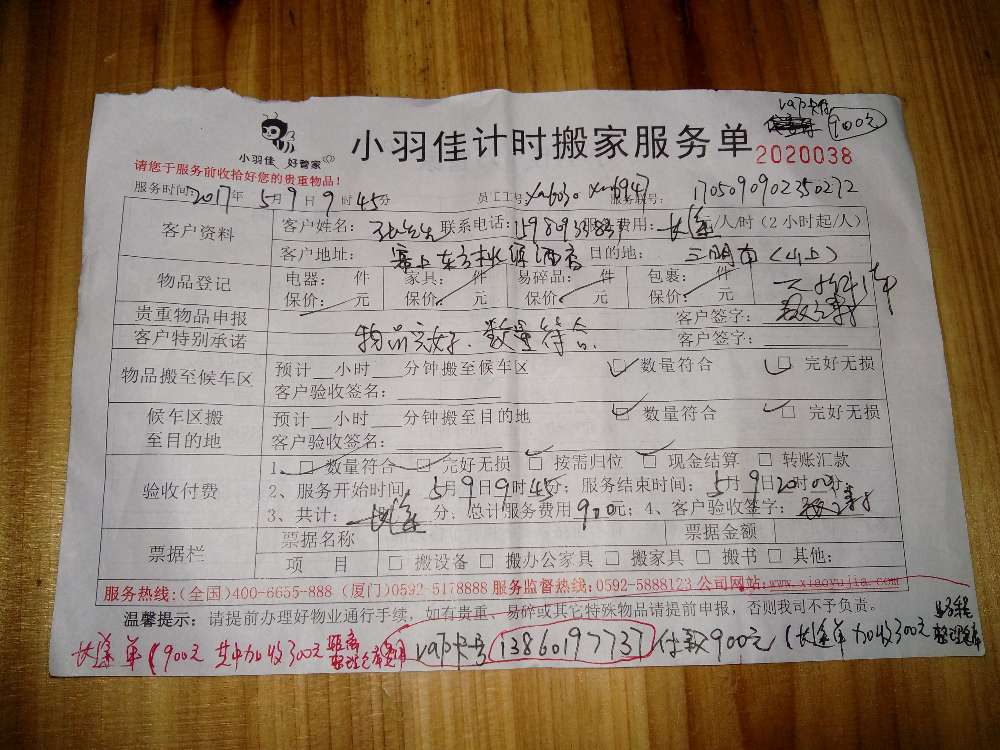 vap卡付
900元
小羽佳 好管家
小羽佳计时搬家服务单 2020038
请您于服务前收拾好您的贵重物品!
服务时间:2017年5月9日9时45分 员工工号: 服务联号: 1705090902350272
客户资料 客户姓名: 联系电话: 服务费用: 长途 元/人/时(2小时起/人)
客户地址: 目的地: 三明市(山上)
物品登记 电器: 件 家具: 件 易碎品: 件 包裹: 件
保价: 元 保价: 元 保价: 元 保价: 元
贵重物品申报 客户签字:
客户特别承诺 物品完好、数量符合、 客户签字:
物品搬至候车区 预计__小时___分钟搬至候车区 数量符合 完好无损
客户验收签名:
候车区搬至目的地 预计__小时___分钟搬至目的地 数量符合 完好无损
客户验收签名:
验收付费 1、 数量符合 完好无损 按需归位 现金结算 转账汇款
2、服务开始时间: 5月9日9时45分; 服务结束时间: 5月9日20时00分;
3、共计: 长途 分, 总计服务费用900元; 4、客户验收签字:
票据栏 票据名称 票据金额
项 目 搬设备 搬办公家具 搬家具 搬书 其他:
服务热线:(全国)400-6655-888 (厦门)0592-5178888 服务监督热线:0592-5888123 公司网站:www.xiaoyujia.com
温馨提示: 请提前办理好物业通行手续, 如有贵重、易碎或其它特殊物品请提前申报, 否则我司不予负责。
长途单(900元 其中加收300元 vap卡号 13860197737 付款900元(长途单加收300元